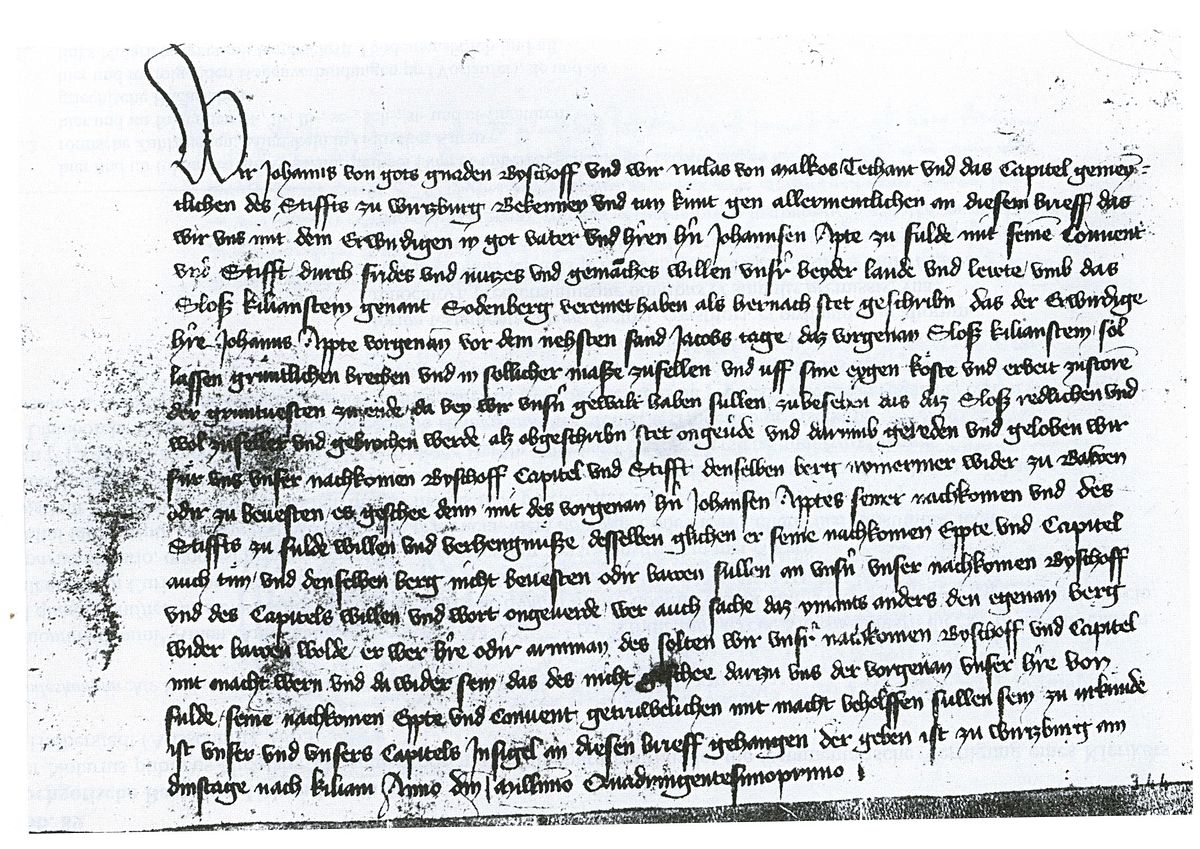 Wir Johanns von gots gnaden Byschoff vnd wir Niclas von Malkos Techant vnd das Capitel gemey-
tlichen des Stiffts zu Wirtzburg Bekennen vnd tun kunt gen allermentlichen an diesem brieff das
wir vns mit dem Erwirdigen in got vater vnd hern hn Johannsen Apte zu fulde mit seine Convent
vnd Stifft durch frides vnd nutzes vnd gemaches willen vnsr beyder lande vnd lewte vmb das
Sloß kilianstein genant Sodenberg vereinet haben als hernach stet geschribn das der Erwirdige
hre Johanns Appte vorgenan vor dem nehsten sand Jacobs tage daz vorgenan Sloß kilianstein sol
lassen gruntlichen brechen vnd in sollicher maße zufellen vnd uff sine eygen koste vnd erbeit zustoren
der gruntuesten zu ende da bey wir vnsn gewalt haben sullen zubesehen das daz Sloß redlichen vnd
wol zufellet vnd gebrochen werde als obgeschribn stet ongeuerde vnd darumb gereden vnd geloben wir
fur vns vnser nachkomen Byschoff Capitel vnd Stifft denselben berg nymermer wider zu Bawen
odir zu beuesten es geschee denn mit des vorgenan hn Johansen Apptes seiner nachkomen vnd des
Stiffts zu fulde willen vnd verhengniße desselben glichen er seine nachkomen Eppte vnd Capitel
auch tun vnd denselben berg nicht beuesten odir bawen sullen an vnsn vnser nachkomen Byschoff
vnd des Capitels willen vnd wort ongeuerde wer auch sache daz ymants anders den egenan berg
wider bawen wolde er wer hre odir armman des solten wir vnsr nachkomen Byschoff vnd Capitel
mit macht wern vnd da wider sein das des nicht geschee darzu vns der vorgenan vnser hre von
fulde seine nachkomen Eppte vnd Convent getruwelichen mit macht beholffen sullen sein zu urkunde
ist vnser vnd vnsers Capitels Insigel an diesen brieff gehangen der geben ist zu Wirtzburg am
dinstage nach kiliani Anno dni Millimo Quadringentesimoprimo
344